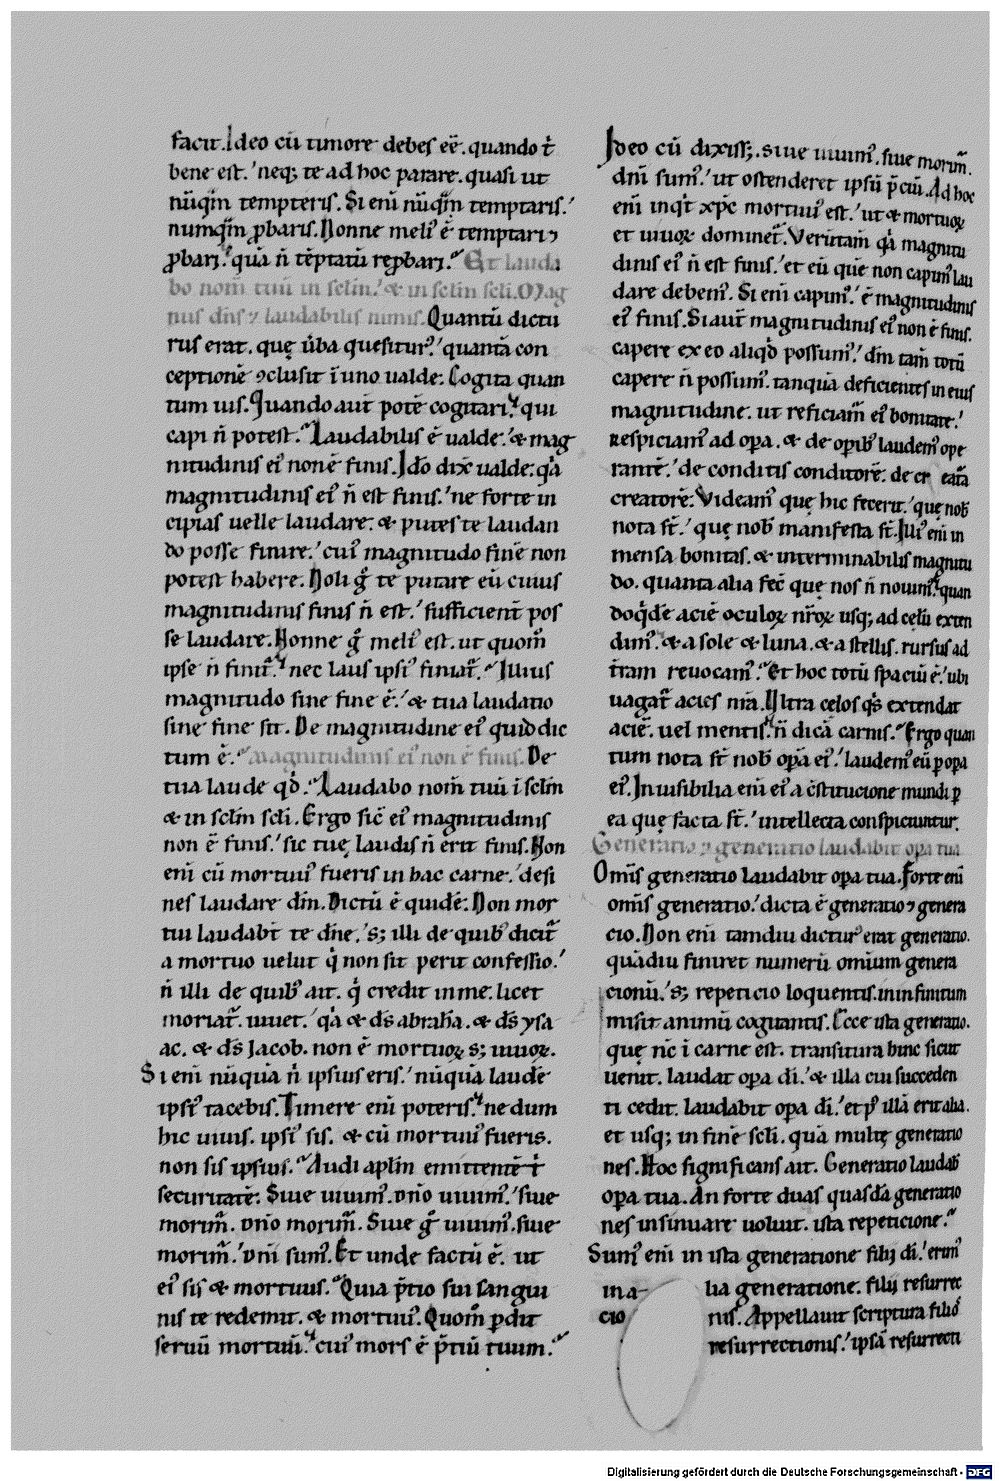 facit. Ideo cū timore debes eē. quando t̄
bene est.' neq; te ad hoc parare. quasi ut
nūq̄m tempteris. Si eni nūq̄m temptaris.'
numq̄m ꝓbaris. Nonne meliꝰ ē temptari ⁊
ꝓbari.' quā n̄ tēptatū reꝓbari. Et lauda
bo nom̄ tuū in sc̄lm.' & in sc̄lm sc̄li. Mag
nus dn̄s ⁊ laudabilis nimis. Quantū dictu
rus erat. quę ūba quesiturꝰ.' quantā con
ceptionē ꝯclusit ī uno ualde. Cogita quan
tum uis. Quando aut̄ potē cogitari. qui
capi n̄ potest. Laudabilis ē ualde.' & mag
nitudinis eiꝰ non ē finis. Id̄o dix̄ ualde. q̄a
magnitudinis eiꝰ n̄ est finis.' ne forte in
cipias uelle laudare. & putes te laudan
do posse finire.' cuiꝰ magnitudo finē non
potest habere. Noli ḡ te putare eū cuius
magnitudinis finis n̄ est.' sufficient̄ pos
se laudare. Nonne ḡ meliꝰ est. ut quom̄
ipse n̄ finit̄. nec laus ipsiꝰ finiat̄. Illius
magnitudo sine fine ē.' & tua laudatio
sine fine sit. De magnitudine eiꝰ quid dic
tum ē. Magnitudinis eiꝰ non ē finis. De
tua laude qd̄. Laudabo nom̄ tuū ī sc̄lm
& in sc̄lm sc̄li. Ergo sic̄ eiꝰ magnitudinis
non ē finis.' sic tuę laudis n̄ erit finis. Non
eni cū mortuꝰ fueris in hac carne.' desi
nes laudare dn̄m. Dictū ē quidē. Non mor
tui laudabt̄ te dn̄e.' s; illi de quibꝰ dicit̄
a mortuo uelut q̄ non sit perit confessio.'
n̄ illi de quibꝰ ait. q̄ credit in me. licet
moriat̄. uiuet.' q̄a & ds̄ abrahā. & ds̄ ysa
ac. & ds̄ Jacob. non ē mortuoꝝ s; uiuoꝝ.
Si eni nūquā n̄ ipsius eris.' nūquā laudē
ipsiꝰ tacebis. Timere eni poteris. ne dum
hic uiuis. ipsiꝰ sis. & cū mortuꝰ fueris.
non sis ipsius. Audi aplm̄ emittentē t̄
securitatē. Siue uiuimꝰ. dn̄o uiuimꝰ.' siue
morim̄. dn̄o morim̄. Siue ḡ uiuimꝰ. siue
morim̄.' dn̄i sumꝰ. Et unde factū ē. ut
eiꝰ sis & mortuus. Quia p̄tio sui sangui
nis te redemit. & mortuꝰ. Quom̄ ꝑdit
seruū mortuū. cuiꝰ mors ē p̄tiū tuum.
Ideo cū dixiss;. siue uiuimꝰ. siue morim̄.
dn̄i sumꝰ.' ut ostenderet ipsū p̄ciū. Ad hoc
eni inqt̄ xp̄c mortuꝰ est.' ut & mortuoꝝ
et uiuoꝝ dominet̄. Verūtam̄ q̄a magnitu
dinis eiꝰ n̄ est finis.' et eū quē non capimꝰ lau
dare debemꝰ. Si eni capimꝰ.' ē magnitudinis
eiꝰ finis. Si aut̄ magnitudinis eiꝰ non ē finis.
capere ex eo aliqd̄ possumꝰ.' dm̄ tam̄ totū
capere n̄ possumꝰ. tanquā deficientes in eius
magnitudine. ut reficiam̄ eiꝰ bonitate.'
Respiciamꝰ ad oꝑa. & de oꝑibꝰ laudemꝰ ope
rantē.' de conditis conditorē. de cr eatis
creatorē. Videamꝰ quę hic fecerit.' que nob̄
nota st̄.' quę nob̄ manifesta st̄. Illiꝰ eni in
mensa bonitas. & interminabilis magnitu
do. quanta alia fec̄ quę nos n̄ nouimꝰ. quan
doq̄de aciē oculoꝝ nr̄oꝝ usq; ad cęlū exten
dimꝰ. & a sole & luna. & a stellis. rursus ad
t̄ram reuocamꝰ. Et hoc totū spaciū ē.' ubi
uagat̄ acies nr̄a. Ultra celos qs̄ extendat
aciē. uel mentis. n̄ dicā carnis. Ergo quan
tum nota st̄ nob̄ oꝑa eiꝰ.' laudemꝰ eū ꝑ opa
eiꝰ. Inuisibilia eni eiꝰ a c̄stitucione mundi ꝑ
ea quę facta st̄.' intellecta conspiciuntur.
Generatio ⁊ generatio laudabit opa tua.
Omīs generatio laudabit oꝑa tua. Forte eni
omīs generatio.' dicta ē generatio ⁊ genera
cio. Non eni tamdiu dicturꝰ erat generatio.
quādiu finiret numerū omnium genera
cionū.' s; repeticio loquentis. in infinitum
misit animū cogitantis. Ecce ista generatio.
quę nc̄ ī carne est. transitura hinc sicut
uenit. laudat oꝑa di.' & illa cui succeden
ti cedit. laudabit oꝑa di.' et pꝰ illā erit alia.
et usq; in finē sc̄li. quā multę generatio
nes. Hoc significans ait. Generatio laudab̄
oꝑa tua. An forte duas quasdā generatio
nes insinuare uoluit. ista repeticione.
Sumꝰ eni in ista generatione filii di.' erimꝰ
in a- lia generatione. filii resurrec
cio nis. Appellauit scriptura filiosꝰ
resurrectionis.' ipsā resurrecti
Digitalisierung gefördert durch die Deutsche Forschungsgemeinschaft - DFG